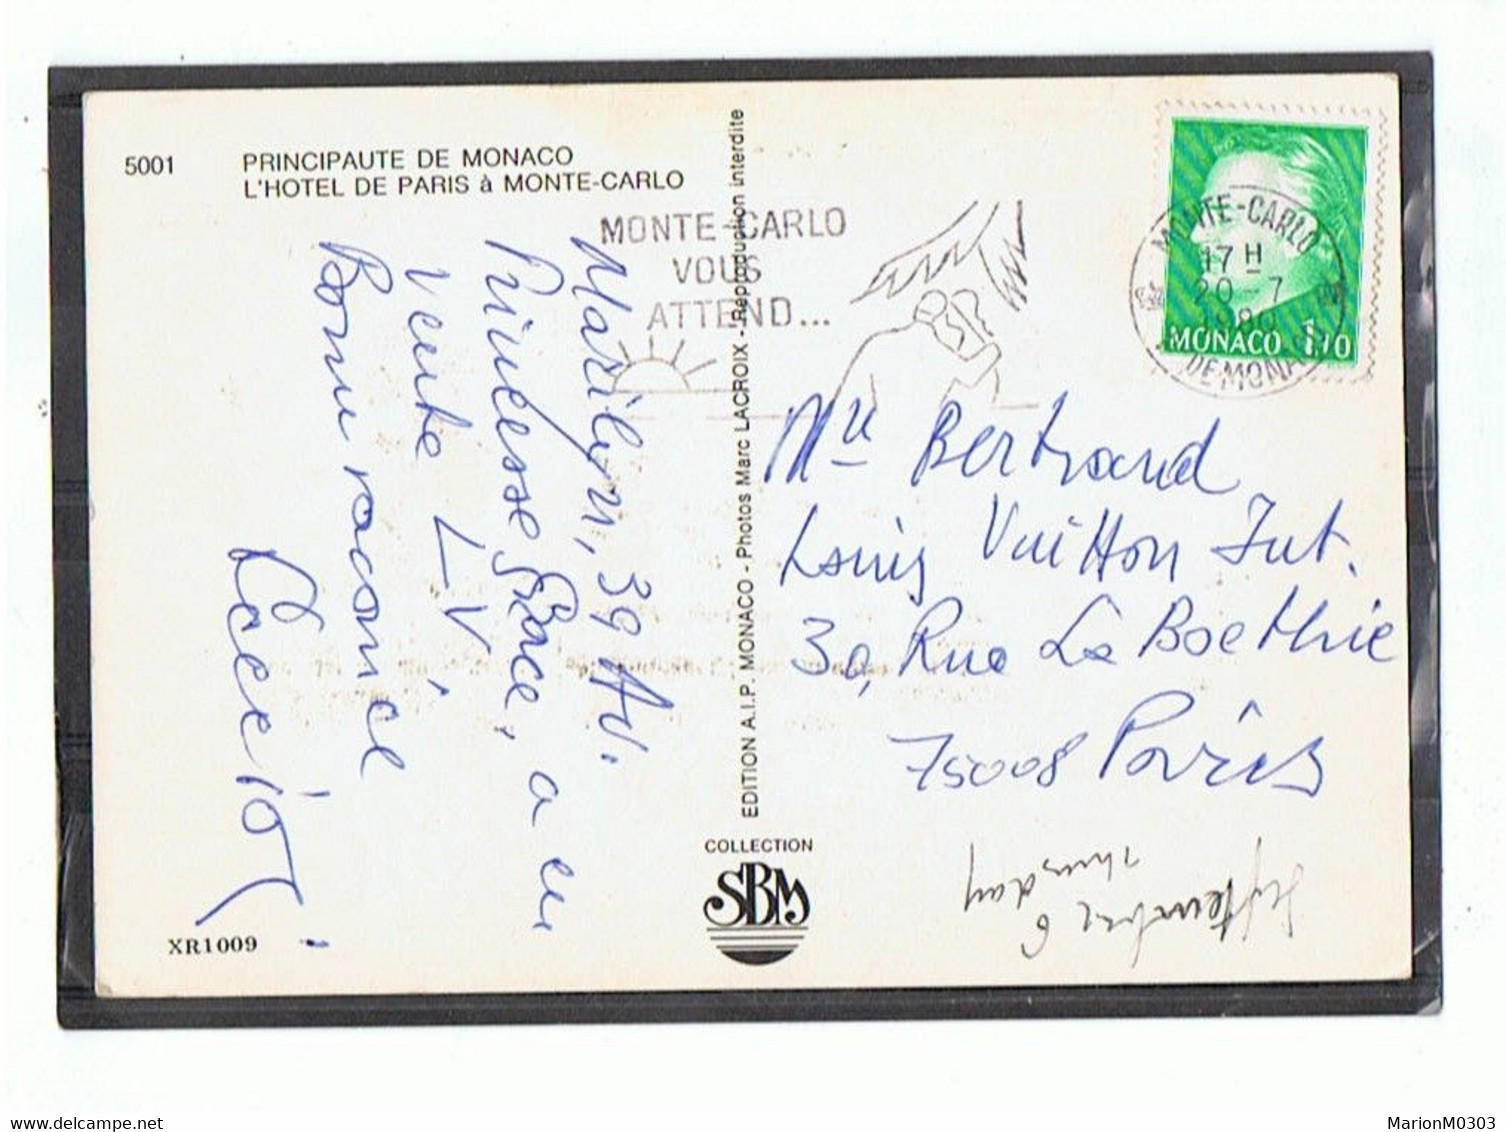 5001 PRINCIPAUTE DE MONACO
L'HOTEL DE PARIS à MONTE-CARLO
MONTE-CARLO
VOUS
ATTEND...
MONTE-CARLO
17 H
20 -7
1980
DE MONACO
MONACO 1,10
Marilyn, 39 Av.
Princesse Grace, a en
vente L.V.
Bonne
EDITION A.I.P. MONACO - Photos Marc LACROIX - Reproduction interdite
Mlle Bertrand
Louis Vuitton Int.
30, Rue La Boethie
75008 Paris
COLLECTION
SBM
September 6
Thursday
XR1009
MarionM0303